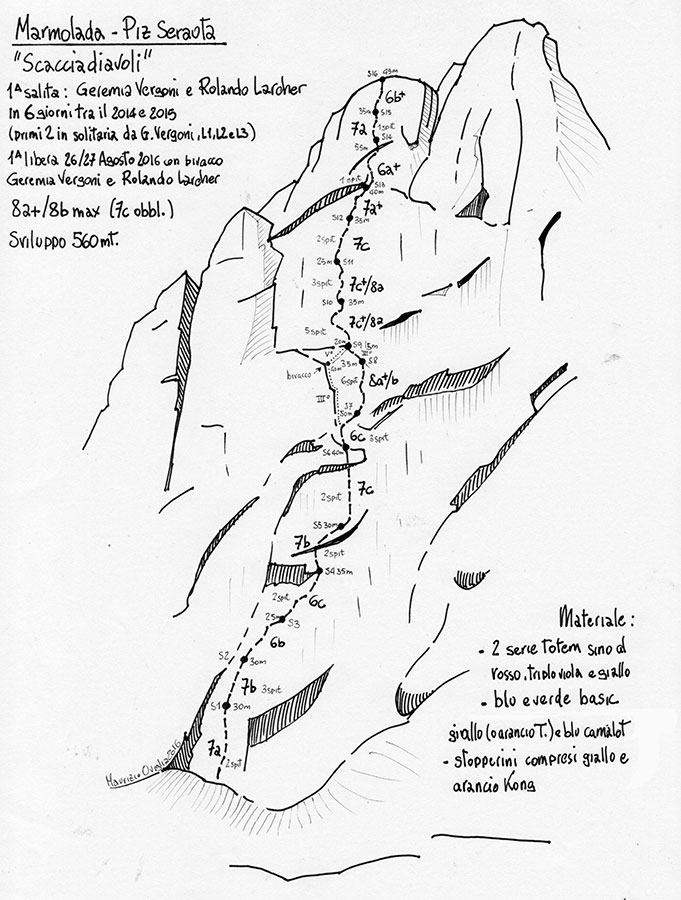 Marmolada - Piz Serauta
"Scacciadiavoli"
1ª salita: Geremia Vergoni e Rolando Larcher
in 6 giorni tra il 2014 e 2015
(primi 2 in solitaria da G. Vergoni, L1, L2 e L3)
1ª libera 26/27 Agosto 2016 con bivacco
Geremia Vergoni e Rolando Larcher
8a+/8b max (7c obbl.)
Sviluppo 560mt.
S16 45m
6b+
35m S15
7a 1spit
S14
55m
6a+
1spit S13
40m
7a+
S12 35m
2spit 7c
25m S11
3spit 7c+/8a
S10 35m
7c+/8a
5spit
20m S9 15m
V° III°
35m S8
bivacco
6spit 8a+/b
III°
S7
50m
6c 3spit
S6 40m
7c
2spit
S5 30m
7b
2spit
S4 35m
2spit 6c
25m S3
6b
S2
30m
7b 3spit
S1 30m
7a
2spit
Materiale:
- 2 serie Totem sino al
rosso, triplo viola e giallo
- blu e verde basic
giallo (o arancio T.) e blu camalot
- stopperini compresi giallo e
arancio Kong